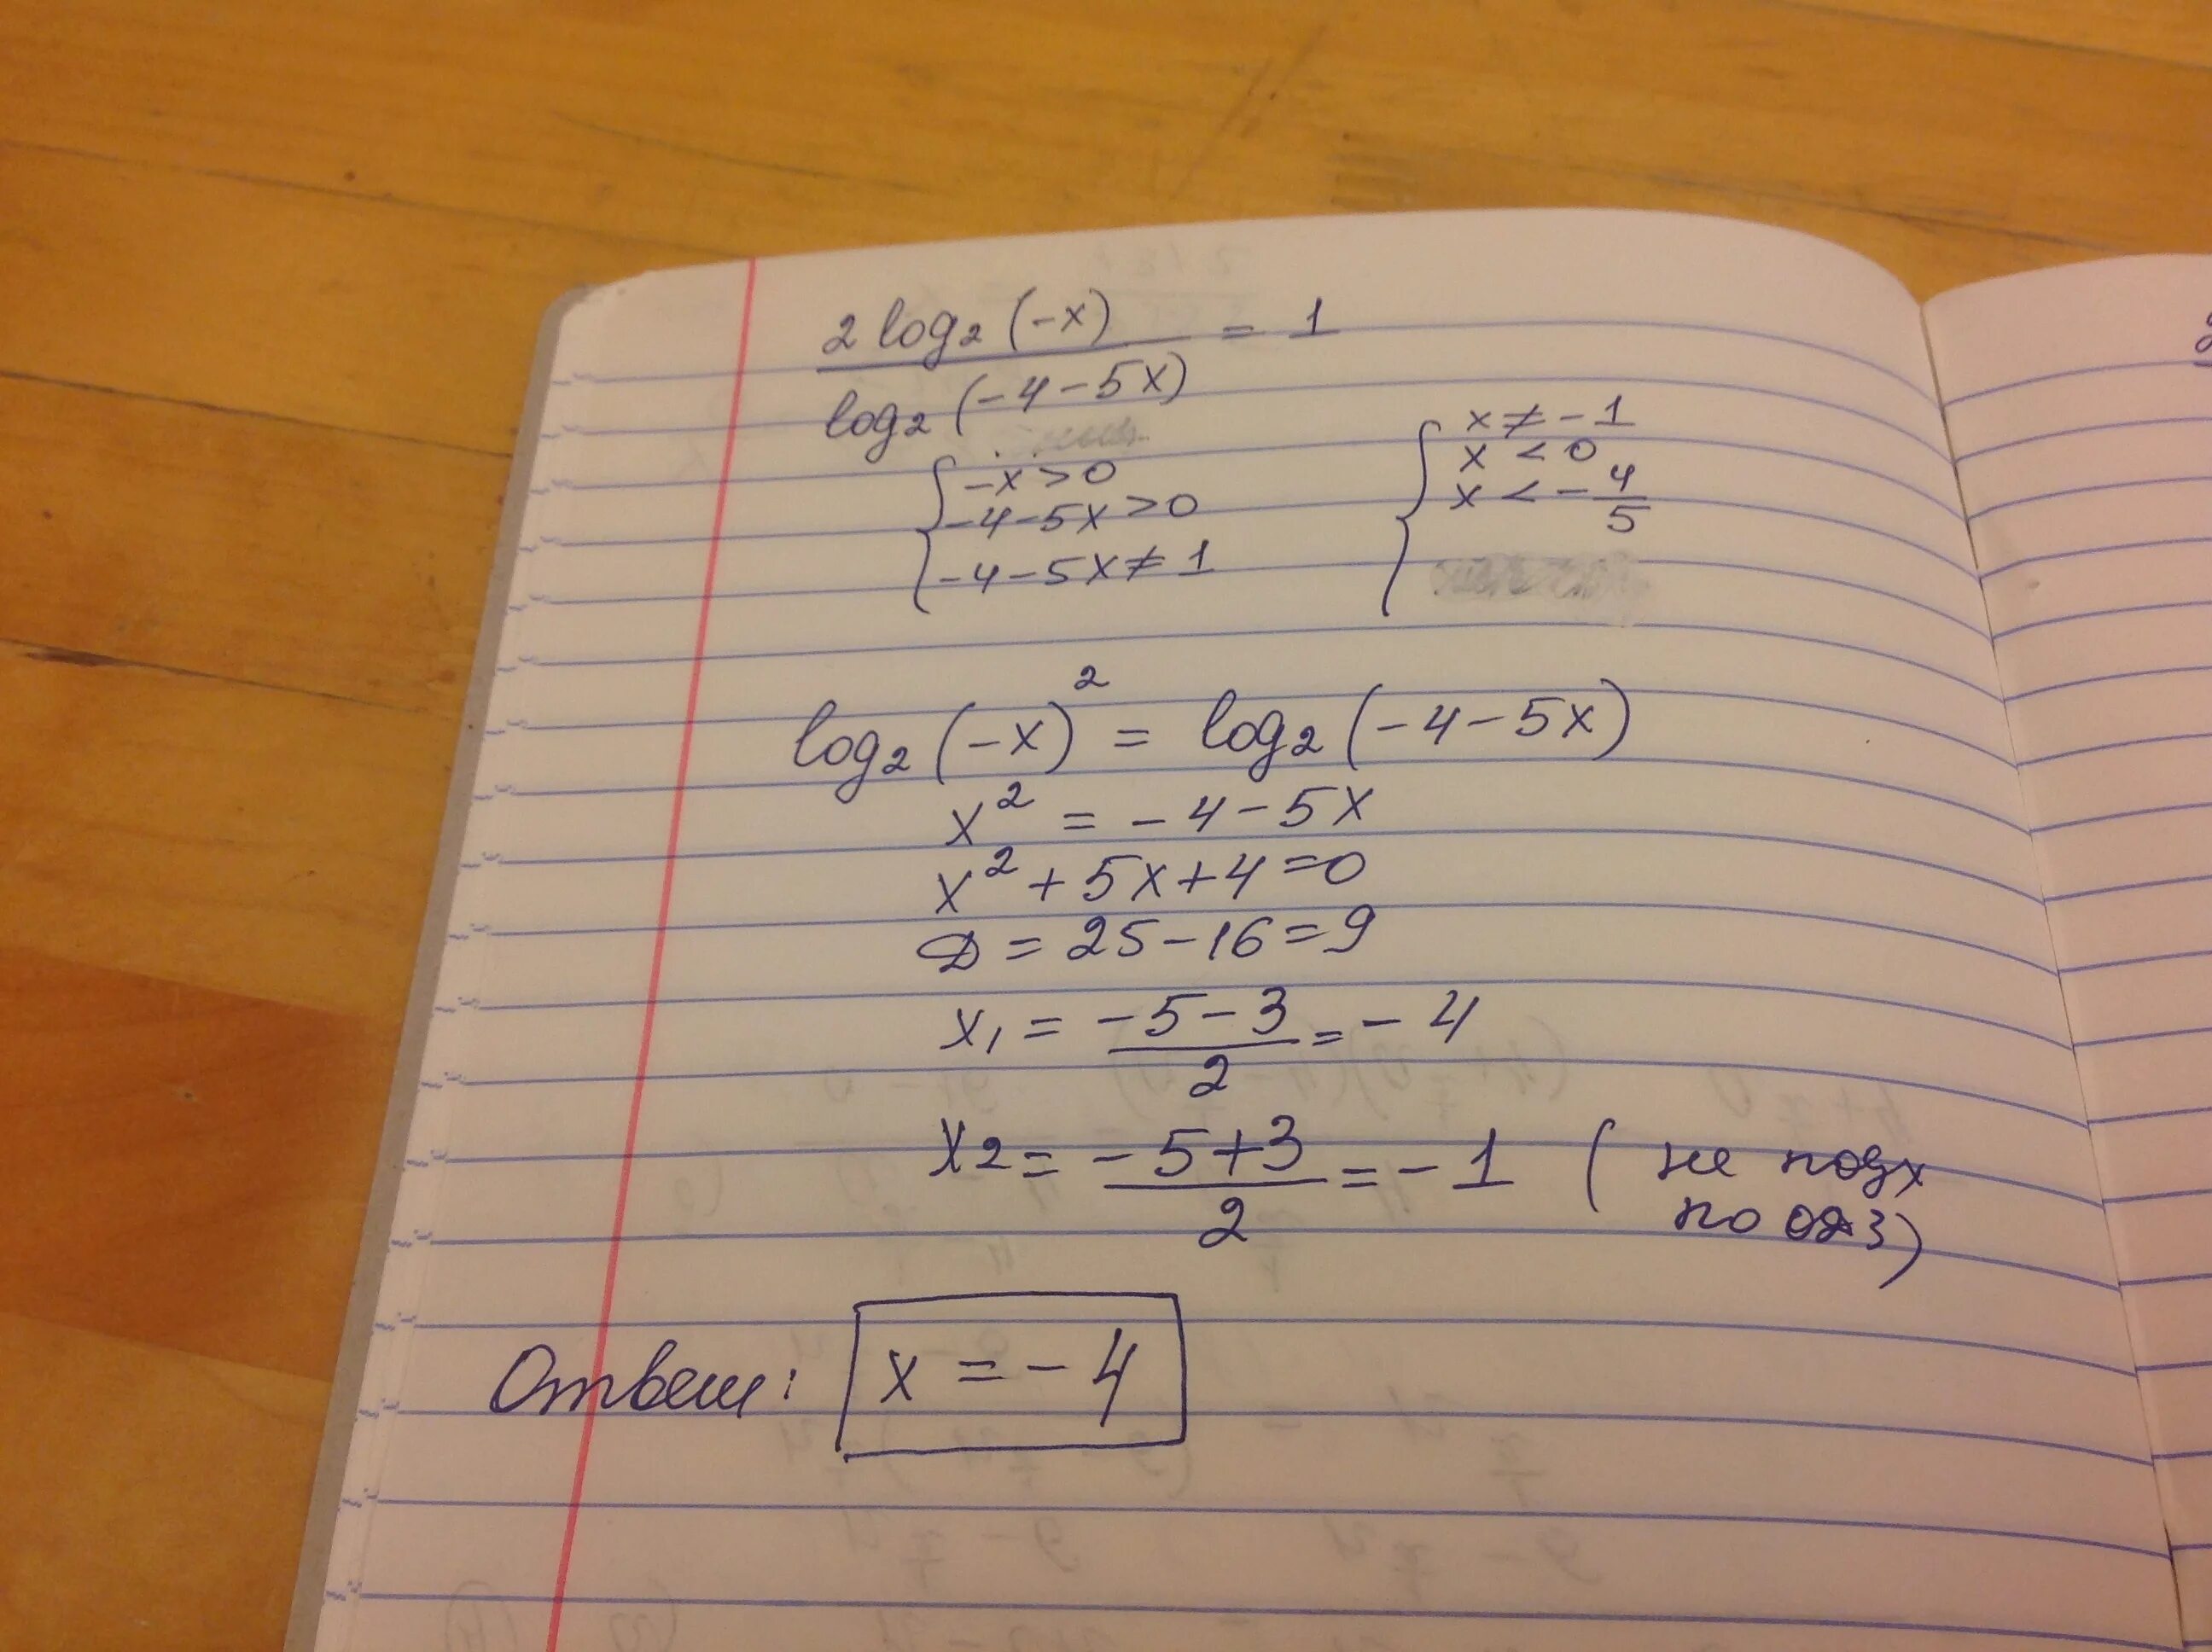 2 log₂ (-x) / log₂ (-4-5x) = 1
{ -x > 0
-4-5x > 0
-4-5x ≠ 1
{ x ≠ -1
x < 0
x < - 4/5
log₂ (-x)² = log₂ (-4-5x)
x² = -4-5x
x² + 5x + 4 = 0
D = 25 - 16 = 9
x₁ = (-5-3)/2 = -4
x₂ = (-5+3)/2 = -1 ( не подх
по одз)
Ответ: x = -4